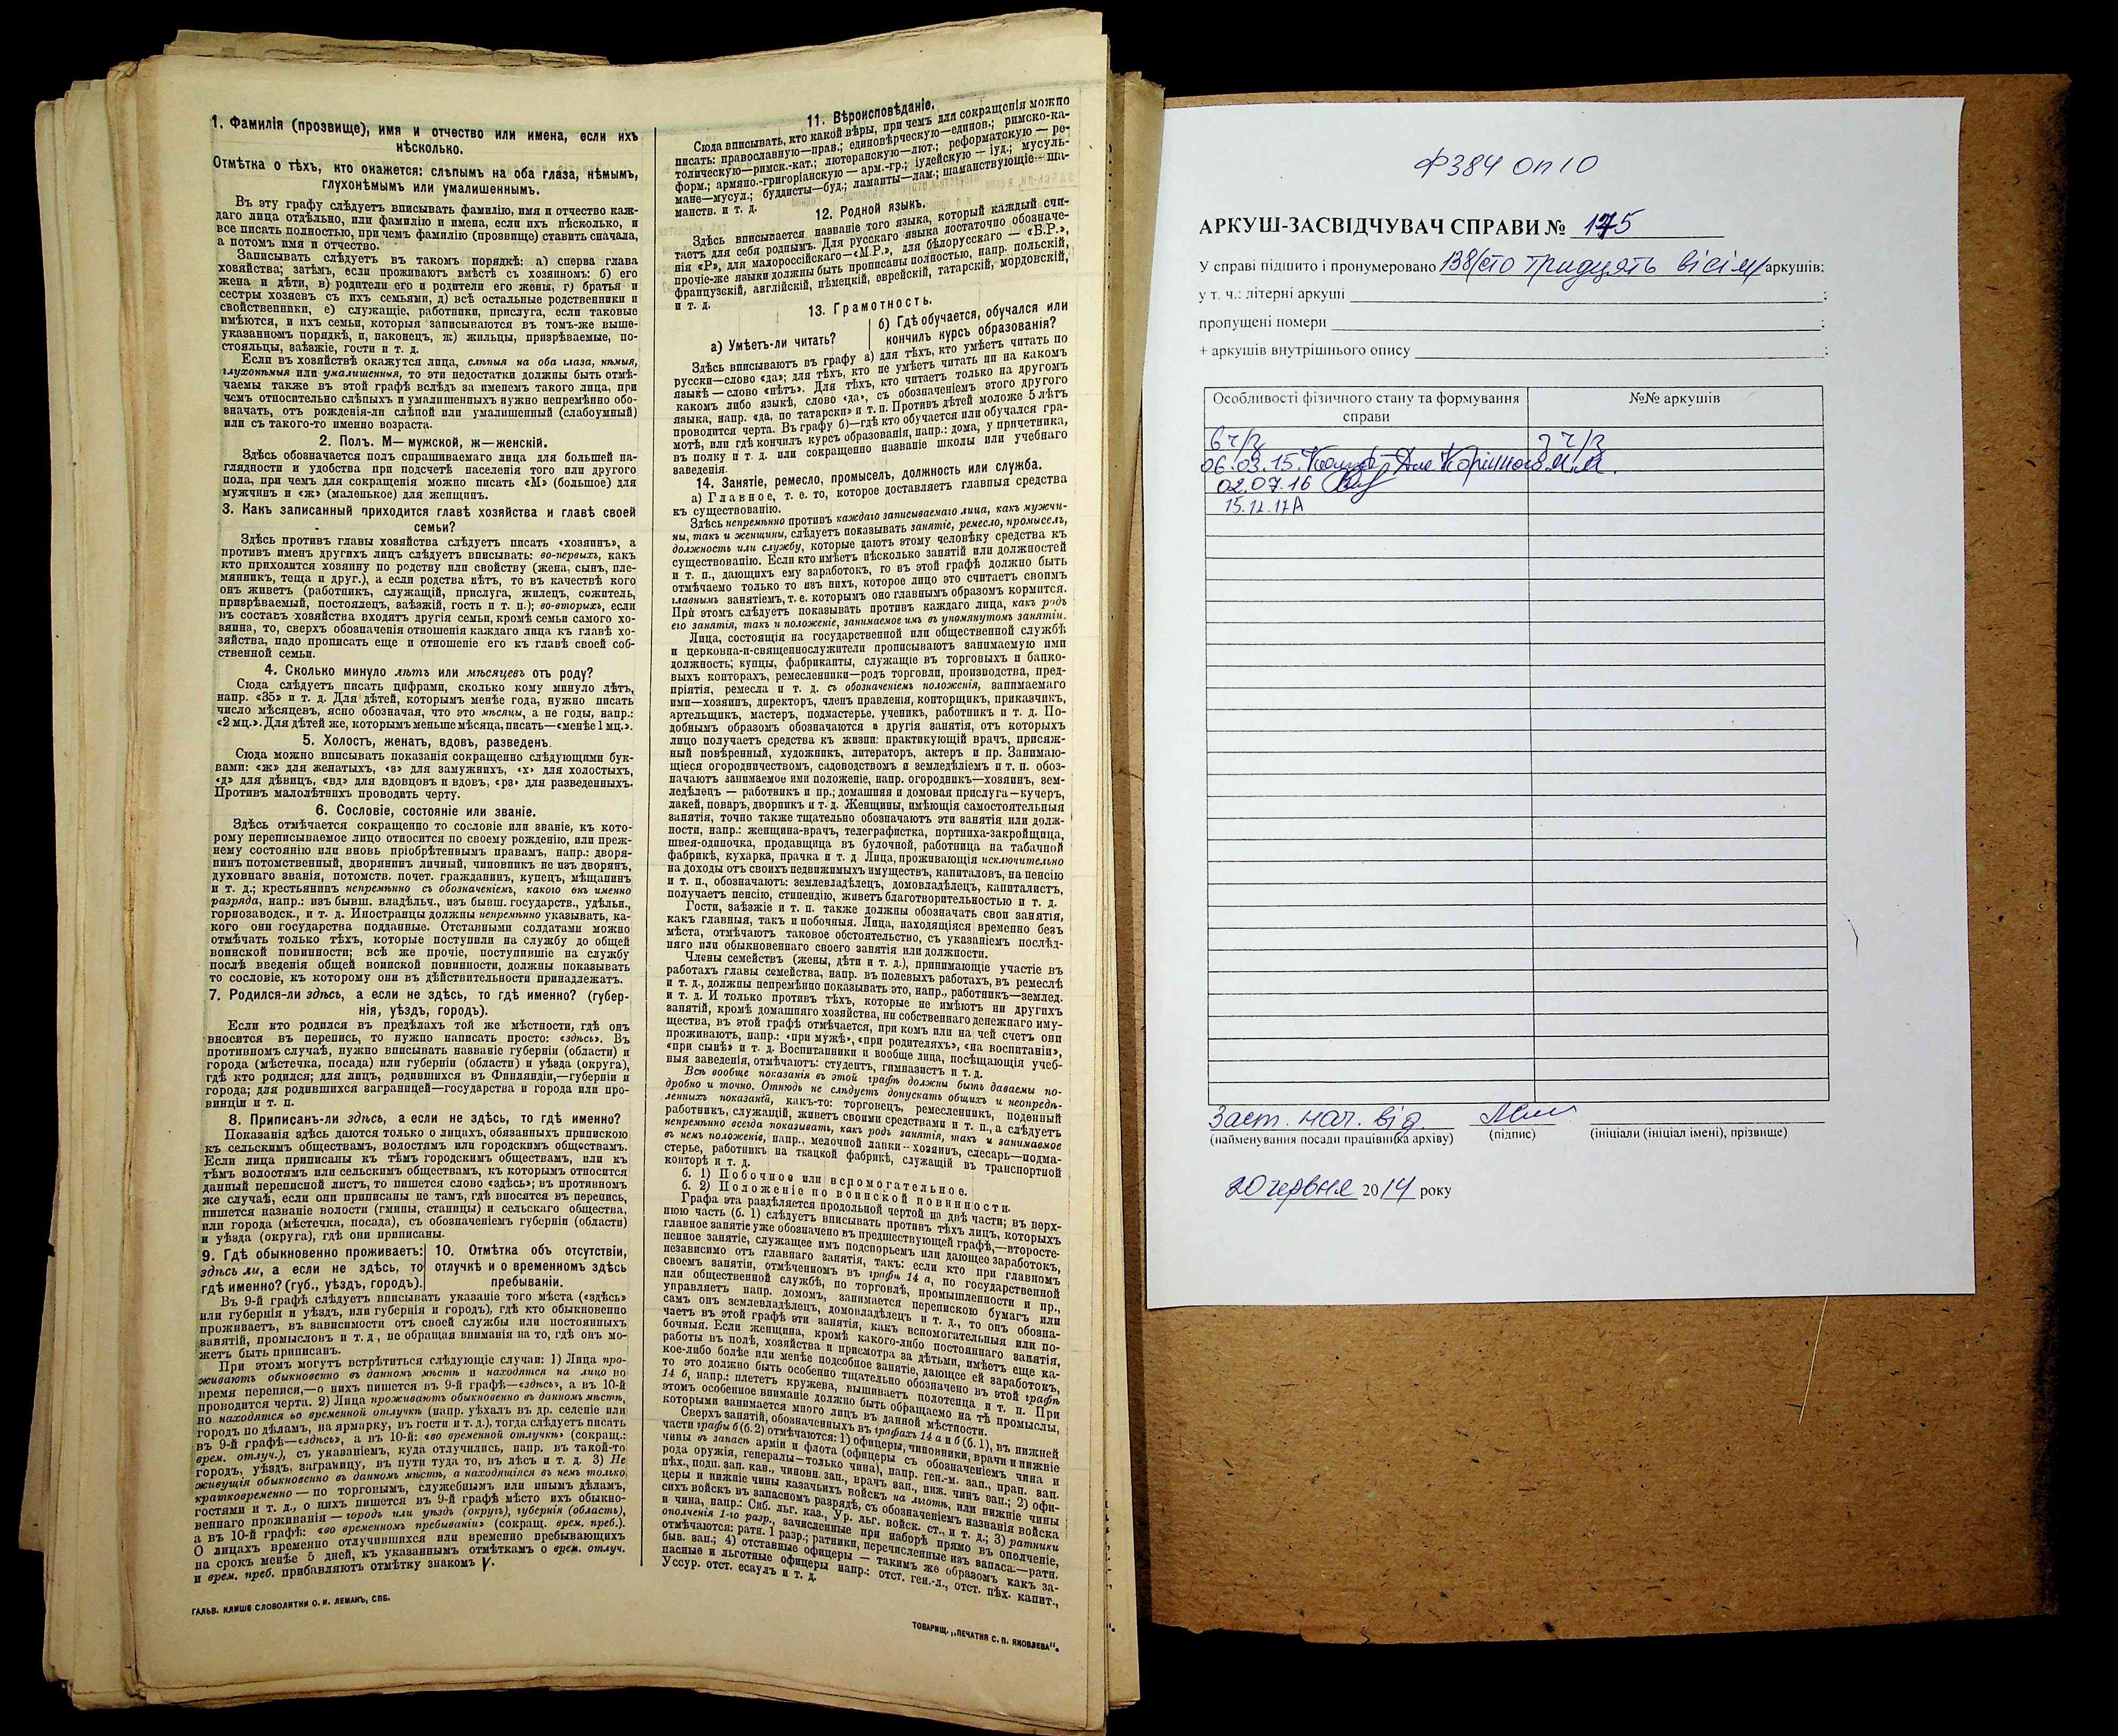 1. Фамилія (прозвище), имя и отчество или имена, если ихъ
нѣсколько.
Отмѣтка о тѣхъ, кто окажется: слѣпымъ на оба глаза, нѣмымъ,
глухонѣмымъ или умалишеннымъ.
Въ эту графу слѣдуетъ вписывать фамилію, имя и отчество каж-
даго лица отдѣльно, или фамилію и имена, если ихъ нѣсколько, и
все писать полностью, при чемъ фамилію (прозвище) ставить сначала,
а потомъ имя и отчество.
Записывать слѣдуетъ въ такомъ порядкѣ: а) сперва глава
хозяйства; затѣмъ, если проживаютъ вмѣстѣ съ хозяиномъ: б) его
жена и дѣти, в) родители его и родители его жены, г) братья и
сестры хозяевъ съ ихъ семьями, д) всѣ остальные родственники и
свойственники, е) служащіе, работники, прислуга, если таковые
имѣются, и ихъ семьи, которыя записываются въ томъ-же выше-
указанномъ порядкѣ, и, наконецъ, ж) жильцы, призрѣваемые, по-
стояльцы, заѣзжіе, гости и т. д.
Если въ хозяйствѣ окажутся лица, слѣпыя на оба глаза, нѣмыя,
глухонѣмыя или умалишенныя, то эти недостатки должны быть отмѣ-
чаемы также въ этой графѣ вслѣдъ за именемъ такого лица, при
чемъ относительно слѣпыхъ и умалишенныхъ нужно непремѣнно обо-
значать, отъ рожденія-ли слѣпой или умалишенный (слабоумный)
или съ такого-то именно возраста.
2. Полъ. М— мужской, ж—женскій.
Здѣсь обозначается полъ спрашиваемаго лица для большей на-
глядности и удобства при подсчетѣ населенія того или другого
пола, при чемъ для сокращенія можно писать «М» (большое) для
мужчинъ и «ж» (маленькое) для женщинъ.
3. Какъ записанный приходится главѣ хозяйства и главѣ своей
семьи?
Здѣсь противъ главы хозяйства слѣдуетъ писать «хозяинъ», а
противъ именъ другихъ лицъ слѣдуетъ вписывать: во-первыхъ, какъ
кто приходится хозяину по родству или свойству (жена, сынъ, пле-
мянникъ, теща и друг.), а если родства нѣтъ, то въ качествѣ кого
онъ живетъ (работникъ, служащій, прислуга, жилецъ, сожитель,
призрѣваемый, постоялецъ, заѣзжій, гость и т. п.); во-вторыхъ, если
въ составъ хозяйства входятъ другія семьи, кромѣ семьи самого хо-
зяина, то, сверхъ обозначенія отношенія каждаго лица къ главѣ хо-
зяйства, надо прописать еще и отношеніе его къ главѣ своей соб-
ственной семьи.
4. Сколько минуло лѣтъ или мѣсяцевъ отъ роду?
Сюда слѣдуетъ писать цифрами, сколько кому минуло лѣтъ,
напр. «35» и т. д. Для дѣтей, которымъ менѣе года, нужно писать
число мѣсяцевъ, ясно обозначая, что это мѣсяцы, а не годы, напр.:
«2 мц.». Для дѣтей же, которымъ меньше мѣсяца, писать—«менѣе 1 мц.».
5. Холостъ, женатъ, вдовъ, разведенъ.
Сюда можно вписывать показанія сокращенно слѣдующими бук-
вами: «ж» для женатыхъ, «з» для замужнихъ, «х» для холостыхъ,
«д» для дѣвицъ, «вд» для вдовцовъ и вдовъ, «рз» для разведенныхъ.
Противъ малолѣтнихъ проводить черту.
6. Сословіе, состояніе или званіе.
Здѣсь отмѣчается сокращенно то сословіе или званіе, къ кото-
рому переписываемое лицо относится по своему рожденію, или преж-
нему состоянію или вновь пріобрѣтеннымъ правамъ, напр.: дворя-
нинъ потомственный, дворянинъ личный, чиновникъ не изъ дворянъ,
духовнаго званія, потомств. почет. гражданинъ, купецъ, мѣщанинъ
и т. д.; крестьянинъ непремѣнно съ обозначеніемъ, какого онъ именно
разряда, напр.: изъ бывш. владѣльч., изъ бывш. государств., удѣльн.,
горнозаводск., и т. д. Иностранцы должны непремѣнно указывать, ка-
кого они государства подданные. Отставными солдатами можно
отмѣчать только тѣхъ, которые поступили на службу до общей
воинской повинности; всѣ же прочіе, поступившіе на службу
послѣ введенія общей воинской повинности, должны показывать
то сословіе, къ которому они въ дѣйствительности принадлежатъ.
7. Родился-ли здѣсь, а если не здѣсь, то гдѣ именно? (губер-
нія, уѣздъ, городъ).
Если кто родился въ предѣлахъ той же мѣстности, гдѣ онъ
вносится въ перепись, то нужно написать просто: «здѣсь». Въ
противномъ случаѣ, нужно вписывать названіе губерніи (области) и
города (мѣстечка, посада) или губерніи (области) и уѣзда (округа),
гдѣ кто родился; для лицъ, родившихся въ Финляндіи,—губерніи и
города; для родившихся заграницей—государства и города или про-
винціи и т. п.
8. Приписанъ-ли здѣсь, а если не здѣсь, то гдѣ именно?
Показанія здѣсь даются только о лицахъ, обязанныхъ припискою
къ сельскимъ обществамъ, волостямъ или городскимъ обществамъ.
Если лица приписаны къ тѣмъ городскимъ обществамъ, или къ
тѣмъ волостямъ или сельскимъ обществамъ, къ которымъ относится
данный переписной листъ, то пишется слово «здѣсь»; въ противномъ
же случаѣ, если они приписаны не тамъ, гдѣ вносятся въ перепись,
пишется названіе волости (гмины, станицы) и сельскаго общества,
или города (мѣстечка, посада), съ обозначеніемъ губерніи (области)
и уѣзда (округа), гдѣ они приписаны.
9. Гдѣ обыкновенно проживаетъ:
здѣсь ли, а если не здѣсь, то
гдѣ именно? (губ., уѣздъ, городъ).
10. Отмѣтка объ отсутствіи,
отлучкѣ и о временномъ здѣсь
пребываніи.
Въ 9-й графѣ слѣдуетъ вписывать указаніе того мѣста («здѣсь»
или губернія и уѣздъ, или губернія и городъ), гдѣ кто обыкновенно
проживаетъ, въ зависимости отъ своей службы или постоянныхъ
занятій, промысловъ и т. д., не обращая вниманія на то, гдѣ онъ мо-
жетъ быть приписанъ.
При этомъ могутъ встрѣтиться слѣдующіе случаи: 1) Лица про-
живаютъ обыкновенно въ данномъ мѣстѣ и находятся на лицо во
время переписи,—о нихъ пишется въ 9-й графѣ—«здѣсь», а въ 10-й
проводится черта. 2) Лица проживаютъ обыкновенно въ данномъ мѣстѣ,
но находятся во временной отлучкѣ (напр. уѣхалъ въ др. селеніе или
городъ по дѣламъ, на ярмарку, въ гости и т. д.), тогда слѣдуетъ писать
въ 9-й графѣ—«здѣсь», а въ 10-й: «во временной отлучкѣ» (сокращ.:
врем. отлуч.), съ указаніемъ, куда отлучились, напр. въ такой-то
городъ, уѣздъ, заграницу, въ пути туда то, въ лѣсъ и т. д. 3) Не
живущія обыкновенно въ данномъ мѣстѣ, а находящіяся въ немъ только,
кратковременно — по торговымъ, служебнымъ или инымъ дѣламъ,
гостями и т. д., о нихъ пишется въ 9-й графѣ мѣсто ихъ обыкно-
веннаго проживанія — городъ или уѣздъ (округъ), губернія (область),
а въ 10-й графѣ: «во временномъ пребываніи» (сокращ. врем. преб.).
О лицахъ временно отлучившихся или временно пребывающихъ
на срокъ менѣе 5 дней, къ указаннымъ отмѣткамъ о врем. отлуч.
и врем. преб. прибавляютъ отмѣтку знакомъ V.
ГАЛЬВ. КЛИШЕ СЛОВОЛИТНИ О. И. ЛЕМАНЪ, СПБ.
11. Вѣроисповѣданіе.
Сюда вписывать, кто какой вѣры, при чемъ для сокращенія можно
писать: православную—прав.; единовѣрческую—единов.; римско-ка-
толическую—римск.-кат.; лютеранскую—лют.; реформатскую — ре-
форм.; армяно.-григоріанскую — арм.-гр.; іудейскую — іуд.; мусуль-
мане—мусул.; буддисты—буд.; ламаиты—лам.; шаманствующіе—ша-
манств. и т. д.
12. Родной языкъ.
Здѣсь вписывается названіе того языка, который каждый счи-
таетъ для себя роднымъ. Для русскаго языка достаточно обозначе-
нія «Р», для малороссійскаго—«М.Р.», для бѣлорусскаго — «Б.Р.»,
прочіе-же языки должны быть прописаны полностью, напр. польскій,
французскій, англійскій, нѣмецкій, еврейскій, татарскій, мордовскій,
и т. д.
13. Грамотность.
а) Умѣетъ-ли читать?
б) Гдѣ обучается, обучался или
кончилъ курсъ образованія?
Здѣсь вписываютъ въ графу а) для тѣхъ, кто умѣетъ читать по
русски—слово «да»; для тѣхъ, кто не умѣетъ читать ни на какомъ
языкѣ — слово «нѣтъ». Для тѣхъ, кто читаетъ только на другомъ
какомъ либо языкѣ, слово «да», съ обозначеніемъ этого другого
языка, напр. «да, по татарски» и т. п. Противъ дѣтей моложе 5 лѣтъ
проводится черта. Въ графу б)—гдѣ кто обучается или обучался гра-
мотѣ, или гдѣ кончилъ курсъ образованія, напр.: дома, у причетника,
въ полку и т. д. или сокращенно названіе школы или учебнаго
заведенія.
14. Занятіе, ремесло, промыселъ, должность или служба.
а) Главное, т. е. то, которое доставляетъ главныя средства
къ существованію.
Здѣсь непремѣнно противъ каждаго записываемаго лица, какъ мужчи-
ны, такъ и женщины, слѣдуетъ показывать занятіе, ремесло, промыселъ,
должность или службу, которые даютъ этому человѣку средства къ
существованію. Если кто имѣетъ нѣсколько занятій или должностей
и т. п., дающихъ ему заработокъ, то въ этой графѣ должно быть
отмѣчаемо только то изъ нихъ, которое лицо это считаетъ своимъ
главнымъ занятіемъ, т. е. которымъ оно главнымъ образомъ кормится.
При этомъ слѣдуетъ показывать противъ каждаго лица, какъ родъ
его занятія, такъ и положеніе, занимаемое имъ въ упомянутомъ занятіи.
Лица, состоящія на государственной или общественной службѣ
и церковна-и-священнослужители прописываютъ занимаемую ими
должность; купцы, фабриканты, служащіе въ торговыхъ и банко-
выхъ конторахъ, ремесленники—родъ торговли, производства, пред-
пріятія, ремесла и т. д. съ обозначеніемъ положенія, занимаемаго
ими—хозяинъ, директоръ, членъ правленія, конторщикъ, приказчикъ,
артельщикъ, мастеръ, подмастерье, ученикъ, работникъ и т. д. По-
добнымъ образомъ обозначаются и другія занятія, отъ которыхъ
лицо получаетъ средства къ жизни: практикующій врачъ, присяж-
ный повѣренный, художникъ, литераторъ, актеръ и пр. Занимаю-
щіеся огородничествомъ, садоводствомъ и земледѣліемъ и т. п. обоз-
начаютъ занимаемое ими положеніе, напр. огородникъ—хозяинъ, зем-
ледѣлецъ — работникъ и пр.; домашняя и домовая прислуга—кучеръ,
лакей, поваръ, дворникъ и т. д. Женщины, имѣющія самостоятельныя
занятія, точно также тщательно обозначаютъ эти занятія или долж-
ности, напр.: женщина-врачъ, телеграфистка, портниха-закройщица,
швея-одиночка, продавщица въ булочной, работница на табачной
фабрикѣ, кухарка, прачка и т. д. Лица, проживающія исключительно
на доходы отъ своихъ недвижимыхъ имуществъ, капиталовъ, на пенсію
и т. п., обозначаютъ: землевладѣлецъ, домовладѣлецъ, капиталистъ,
получаетъ пенсію, стипендію, живетъ благотворительностью и т. д.
Гости, заѣзжіе и т. п. также должны обозначать свои занятія,
какъ главныя, такъ и побочныя. Лица, находящіяся временно безъ
мѣста, отмѣчаютъ таковое обстоятельство, съ указаніемъ послѣд-
няго или обыкновеннаго своего занятія или должности.
Члены семействъ (жены, дѣти и т. д.), принимающіе участіе въ
работахъ главы семейства, напр. въ полевыхъ работахъ, въ ремеслѣ
и т. д., должны непремѣнно показывать это, напр., работникъ—землед.
и т. д. И только противъ тѣхъ, которые не имѣютъ ни другихъ
занятій, кромѣ домашняго хозяйства, ни собственнаго денежнаго иму-
щества, въ этой графѣ отмѣчается, при комъ или на чей счетъ они
проживаютъ, напр.: «при мужѣ», «при родителяхъ», «на воспитаніи»,
«при сынѣ» и т. д. Воспитанники и вообще лица, посѣщающія учеб-
ныя заведенія, отмѣчаютъ: студентъ, гимназистъ и т. д.
Всѣ вообще показанія въ этой графѣ должны быть даваемы по-
дробно и точно. Отнюдь не слѣдуетъ допускать общихъ и неопредѣ-
ленныхъ показаній, какъ-то: торговецъ, ремесленникъ, поденный
работникъ, служащій, живетъ своими средствами и т. п., а слѣдуетъ
непремѣнно всегда показывать, какъ родъ занятія, такъ и занимаемое
въ немъ положеніе, напр., мелочной лавки—хозяинъ, слесарь—подма-
стерье, работникъ на ткацкой фабрикѣ, служащій въ транспортной
конторѣ и т. д.
б. 1) Побочное или вспомогательное.
б. 2) Положеніе по воинской повинности.
Графа эта раздѣляется продольной чертой на двѣ части; въ верх-
нюю часть (б. 1) слѣдуетъ вписывать противъ тѣхъ лицъ, которыхъ
главное занятіе уже обозначено въ предшествующей графѣ,—второсте-
пенное занятіе, служащее имъ подспорьемъ или дающее заработокъ,
независимо отъ главнаго занятія, такъ: если кто при главномъ
своемъ занятіи, отмѣченномъ въ графѣ 14 а, по государственной
или общественной службѣ, по торговлѣ, промышленности и пр.,
управляетъ напр. домомъ, занимается перепискою бумагъ или
самъ онъ землевладѣлецъ, домовладѣлецъ и т. д., то онъ обозна-
чаетъ въ этой графѣ эти занятія, какъ вспомогательныя или по-
бочныя. Если женщина, кромѣ какого-либо постояннаго занятія,
работы въ полѣ, хозяйства и присмотра за дѣтьми, имѣетъ еще ка-
кое-либо болѣе или менѣе подсобное занятіе, дающее ей заработокъ,
то это должно быть особенно тщательно обозначено въ этой графѣ
14 б, напр.: плететъ кружева, вышиваетъ полотенца и т. п. При
этомъ особенное вниманіе должно быть обращаемо на тѣ промыслы,
которыми занимается много лицъ въ данной мѣстности.
Сверхъ занятій, обозначенныхъ въ графахъ 14 а и б (б. 1), въ нижней
части графы б (б. 2) отмѣчаются: 1) офицеры, чиновники, врачи и нижніе
чины въ запасѣ арміи и флота (офицеры съ обозначеніемъ чина и
рода оружія, генералы—только чина), напр. ген.-м. зап., прап. зап.
пѣх., подп. зап. кав., чиновн. зап., врачъ зап., ниж. чинъ зап.; 2) офи-
церы и нижніе чины казачьихъ войскъ на льготѣ, или нижніе чины
сихъ войскъ въ запасномъ разрядѣ, съ обозначеніемъ названія войска
и чина, напр.: Сиб. льг. каз., Ур. льг. войск. ст., и т. д.; 3) ратники
ополченія 1-го разр., зачисленные при наборѣ прямо въ ополченіе,
отмѣчаются: ратн. 1 разр.; ратники, перечисленные изъ запаса:—ратн.
быв. зап.; 4) отставные офицеры — такимъ же образомъ какъ за-
пасные и льготные офицеры напр.: отст. ген.-л., отст. пѣх. капит.,
Уссур. отст. есаулъ и т. д.
ТОВАРИЩ. „ПЕЧАТНЯ С. П. ЯКОВЛЕВА“.
Ф384 оп 10
АРКУШ-ЗАСВІДЧУВАЧ СПРАВИ № 175
У справі підшито і пронумеровано 138 (сто тридцять вісім) аркушів;
у т. ч.: літерні аркуші ;
пропущені номери ;
+ аркушів внутрішнього опису ;
Особливості фізичного стану та формування
справи
№№ аркушів
06.03.15.
02.07.16
15.12.17
Заст. нач. від.
(найменування посади працівника архіву) (підпис) (ініціали (ініціал імені), прізвище)
20 червня 2014 року